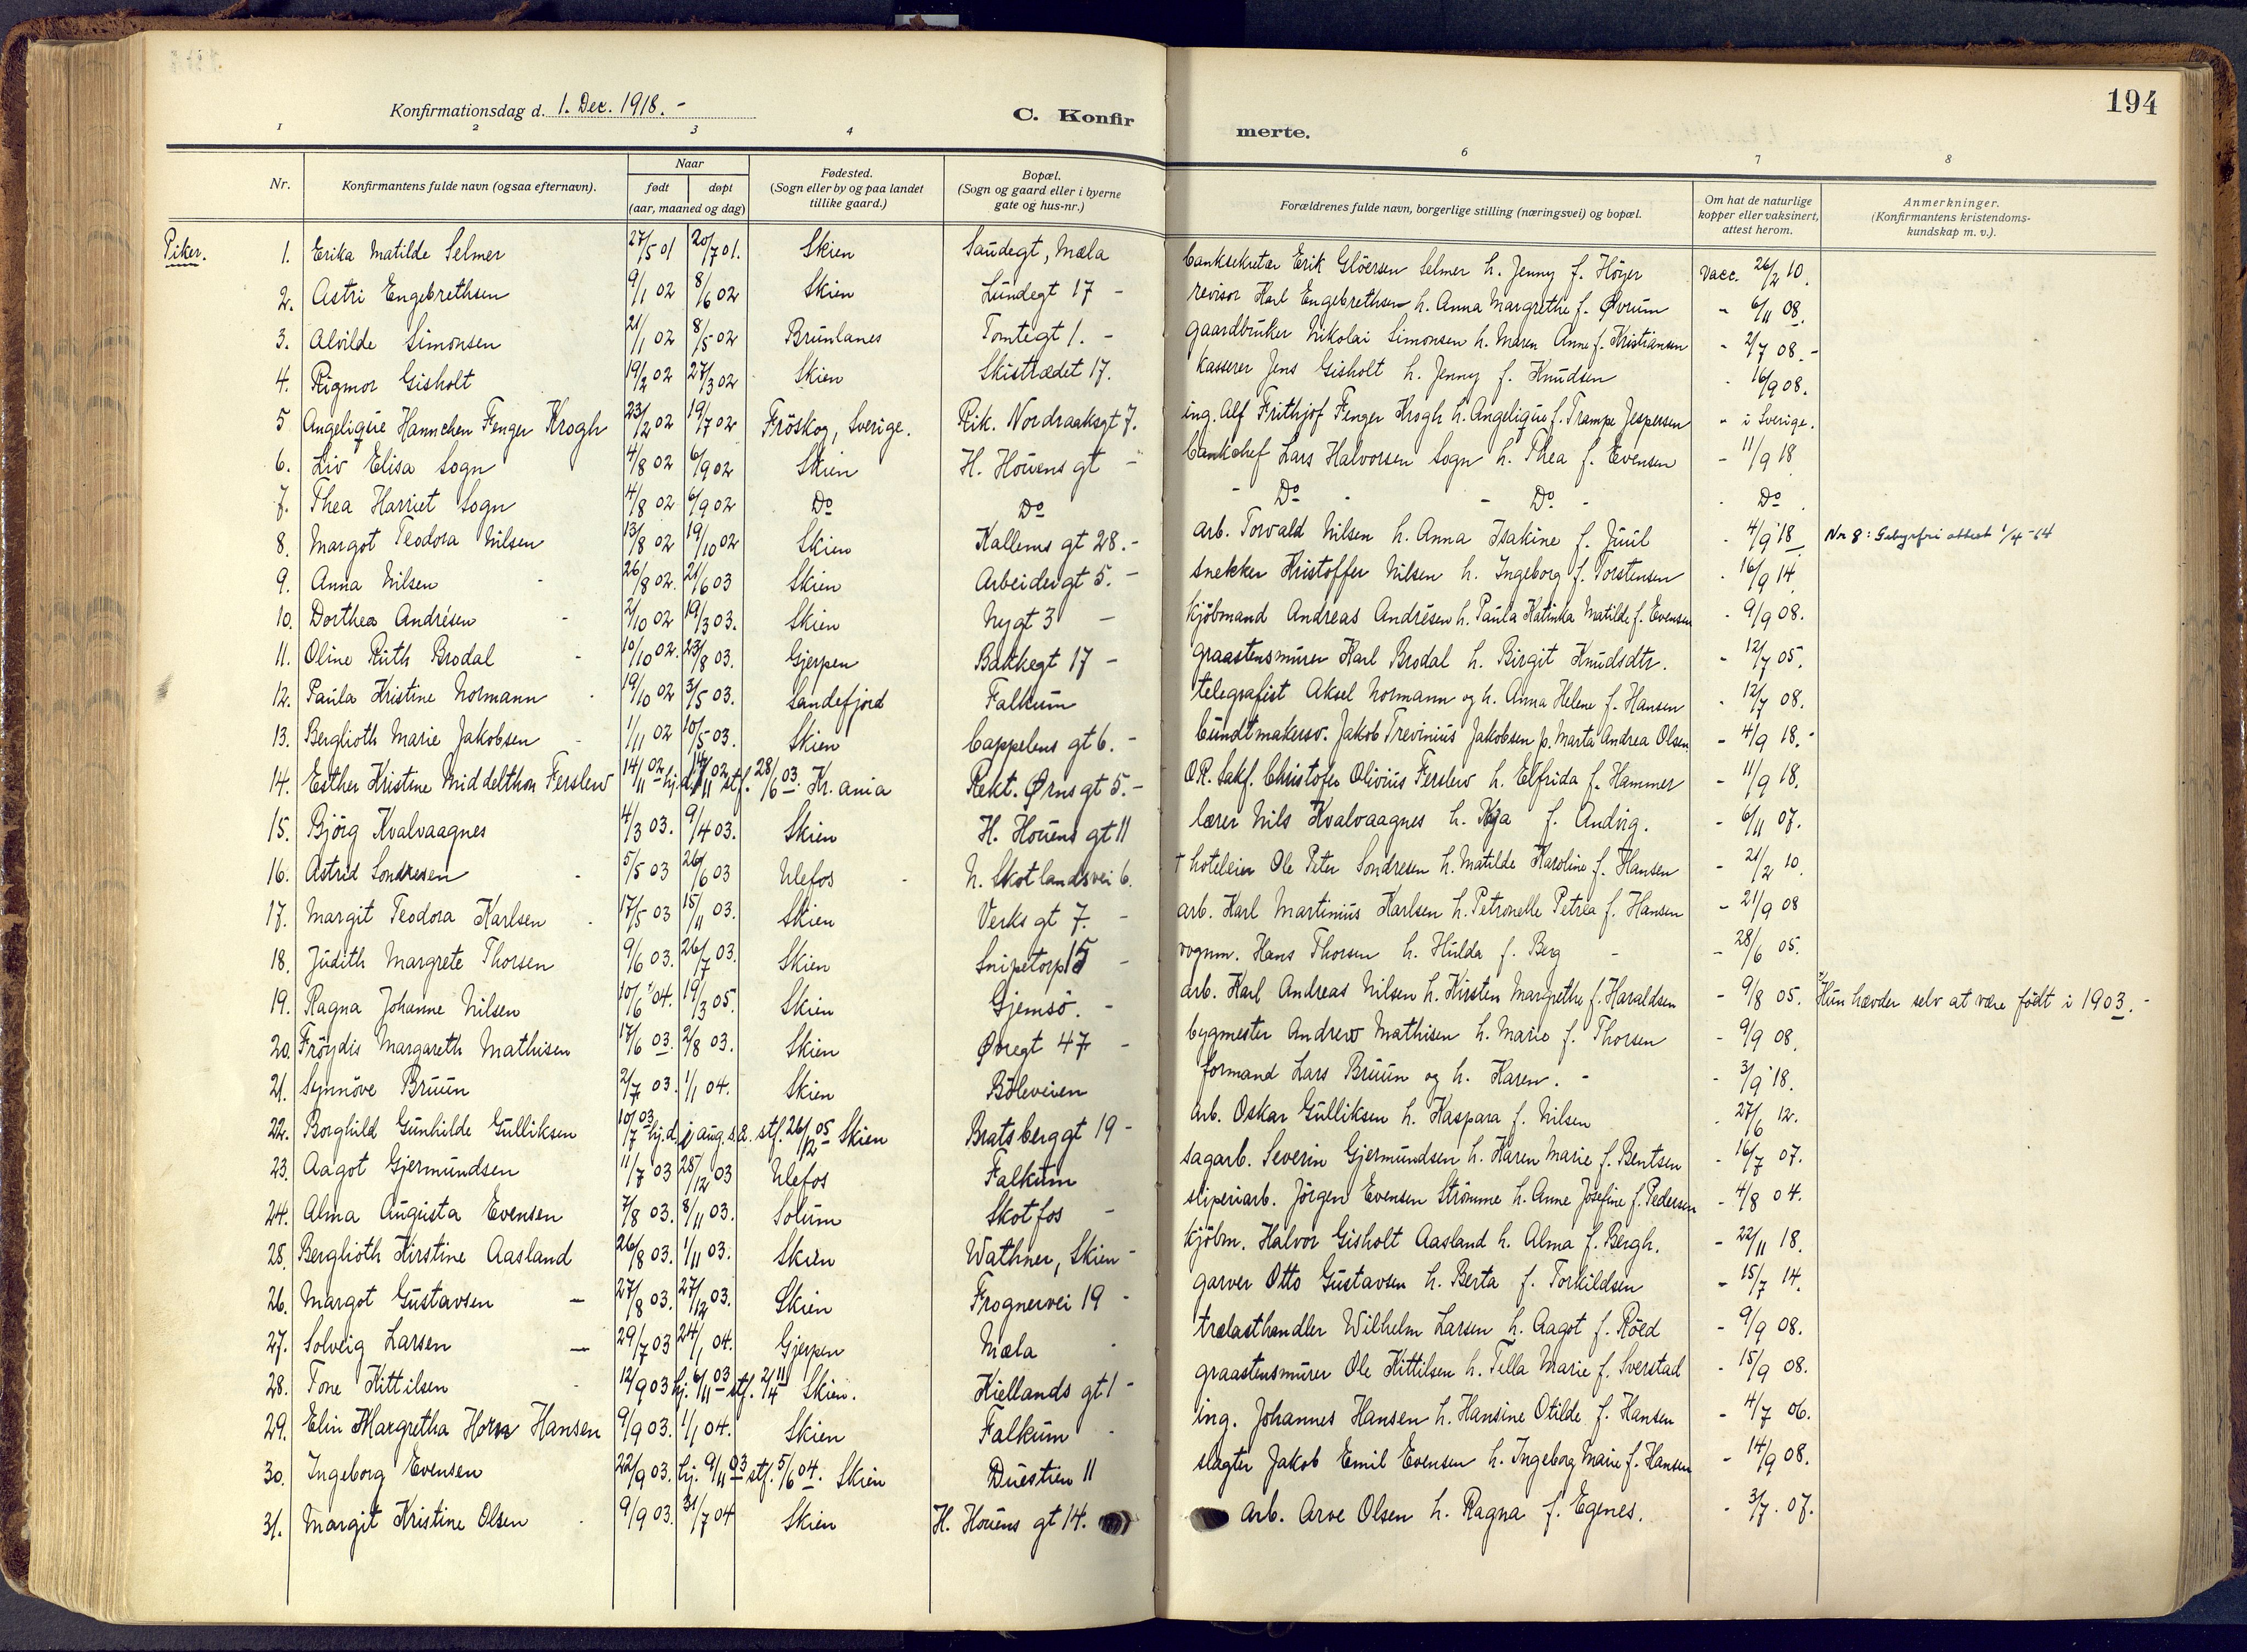 194
Konfirmationsdag d. 1. Dec. 1918. -
C. Konfir merte.
1 2 3 4 6 7 8
Nr. Konfirmantens fulde navn (ogsaa efternavn). Naar født døpt (aar, maaned og dag) Fødested. (Sogn eller by og paa landet tillike gaard.) Bopæl. (Sogn og gaard eller i byerne gate og hus-nr.) Forældrenes fulde navn, borgerlige stilling (næringsvei) og bopæl. Om hat de naturlige kopper eller vaksinert, attest herom. Anmerkninger. (Konfirmantens kristendoms-kundskap m. v.).
Piker.
1. Erika Matilde Selmer 27/5 01 20/7 01. Skien Saudegt, Mæla banksekretær Erik Glöersen Selmer h. Jenny f. Höyer vacc. 26/2 10.
2. Astri Engebrethsen 9/1 02 8/6 02 Skien Lundegt 17 - revisor Karl Engebrethsen h. Anna Margrethe f. Øvrum - 6/11 08.
3. Alvilde Simonsen 21/1 02 8/5 02 Brunlanes Tomtegt 1. - gaardbruker Nikolai Simonsen h. Maren Anne f. Kristiansen - 2/7 08. -
4. Rigmor Gisholt 19/2 02 27/3 02 Skien Skistrædet 17. kasserer Jens Gisholt h. Jenny f. Knudsen - 16/9 08.
5 Angelique Hannchen Fenger Krogh 23/2 02 19/7 02 Fröskog, Sverige. Rik. Nordraaksgt 7. ing. Alf Frithjof Fenger Krogh h. Angelique f. Trampe Jespersen - i Sverige.
6. Liv Elisa Sogn 4/8 02 6/9 02 Skien H. Houens gt - bankchef Lars Halvorsen Sogn h. Thea f. Evensen - 11/9 18
7. Thea Harriet Sogn 4/8 02 6/9 02 Do Do - Do - - Do - - Do.
8. Margot Teodora Nilsen 13/8 02 19/10 02 Skien Kallems gt 28. - arb. Torvald Nilsen h. Anna Isakine f. Juul - 4/9 18 Nr 8: Gebyrfri attest 1/4-64
9. Anna Nilsen - 26/8 02. 21/6 03 Skien Arbeidergt 5. - snekker Kristoffer Nilsen h. Ingeborg f. Torstensen - 16/9 14.
10. Dorthea Andrésen - 2/10 02 19/3 03. Skien Nygt 3 - kjöbmand Andreas Andrésen h. Paula Katinka Matilde f. Evensen - 9/9 08.
11. Oline Ruth Brodal - 10/10 02. 23/8 03. Gjerpen Bakkegt 17 - graastensmurer Karl Brodal h. Birgit Knudsdtr. - 12/7 05.
12. Paula Kristine Normann - 19/10 02 3/5 03. Sandefjord Falkum telegrafist Aksel Normann og h. Anna Helene f. Hansen - 12/7 08.
13. Berglioth Marie Jakobsen - 1/11 02 10/5 03. Skien Cappelens gt 6. - bundtmakersv. Jakob Trevinius Jakobsen p. Marta Andrea Olsen - 4/9 18. -
14. Esther Kristine Middelthon Ferslew 14/11 02 hj.d. 14/11 02 stf. 28/6 03. Kr.ania Rekt. Ørnsgt 5. - O.R. sakf. Christofer Olivius Ferslew h. Elfrida f. Hammer - 11/9 18.
15. Björg Kvalvaagnes 4/3 03. 9/4 03. Skien H. Houens gt 11 lærer Nils Kvalvaagnes h. Kaja f. Andvig. - 6/11 07.
16. Astrid Sondresen - 5/5 03 26/6 03 Ulefos - N. Skotlandsvei 6. † hoteleier Ole Peter Sondresen h. Matilde Karoline f. Hansen - 21/2 10.
17. Margit Teodora Karlsen - 17/5 03 15/11 03. Skien Verksgt 7. - arb. Karl Martinius Karlsen h. Petronelle Petrea f. Hansen - 21/9 08
18. Judith Margrete Thorsen 9/6 03. 26/7 03. Skien Snipetorp 15 - vognm. Hans Thorsen h. Hulda f. Berg - - 28/6 05.
19. Ragna Johanne Nilsen 10/6 04. 19/3 05. Skien Gjemsö. - arb. Karl Andreas Nilsen h. Kirsten Margrethe f. Haraldsen - 9/8 05. Hun hævder selv at være födt i 1903. -
20. Fröydis Margareth Mathisen 17/6 03. 2/8 03. Skien Øvregt 47 - bygmester Andrew Mathisen h. Marie f. Thorsen - 9/9 08.
21. Synnöve Bruun 2/7 03. 1/1 04. Skien Böleveien formand Lars Bruun og h. Karen. - - 3/9 18.
22. Borghild Gunhilde Gulliksen 10/7 03 hj.d. i aug. s.a. stf. 26/12 05 Skien Bratsberggt 19 - arb. Oskar Gulliksen h. Kaspara f. Nilsen - 27/6 12.
23. Aagot Gjermundsen 11/7 03 25/12 03 Ulefos Falkum sagarb. Severin Gjermundsen h. Karen Marie f. Bentsen - 16/7 07.
24. Alma Augusta Evensen 7/8 03. 8/11 03. Solum Skotfos - sliperiarb. Jörgen Evensen Strömme h. Anne Josefine f. Pedersen - 4/8 04.
25. Berglioth Kirstine Aasland 26/8 03. 1/11 03. Skien Wathner, Skien - kjöbm. Halvor Gisholt Aasland h. Alma f. Bergh. - 22/11 18.
26. Margot Gustavsen - 27/8 03. 27/12 03. Skien Frognervei 19 - garver Otto Gustavsen h. Berta f. Torkildsen - 15/7 14.
27. Solveig Larsen - 29/7 03 24/1 04. Gjerpen Mæla - trælasthandler Wilhelm Larsen h. Aagot f. Röed - 9/9 08.
28. Tone Kittilsen - 12/9 03 hj. 6/11 03 stf. 2/4 11 Skien. Kiellands gt 1 - graastensmurer Ole Kittilsen h. Tella Marie f. Sverstad - 15/9 08.
29. Elin Margretha Horn Hansen 9/9 03. 1/1 04. Skien Falkum - ing. Johannes Hansen h. Hansine Otilde f. Hansen - 4/7 06.
30. Ingeborg Evensen 22/9 03. hj. 9/11 03 stf. 5/6 04. Skien Duestien 11 slagter Jakob Emil Evensen h. Ingeborg Marie f. Hansen - 14/9 08.
31. Margit Kristine Olsen - 9/9 03. 31/7 04 Skien H. Houens gt 14. arb. Arve Olsen h. Ragna f. Egenes. - 3/7 07.